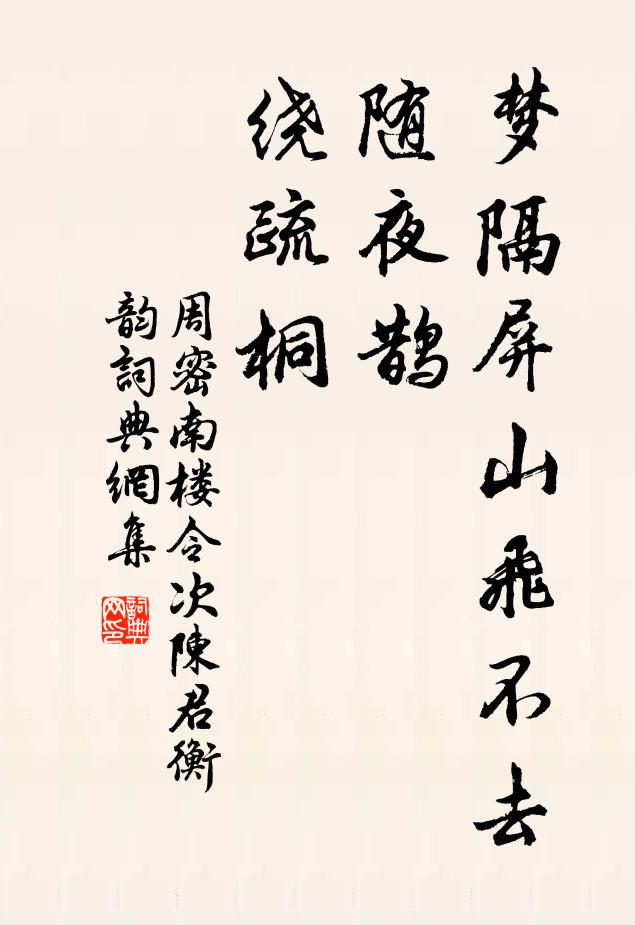 梦隔屏山飛不去
随夜鹊
绕疏桐
周密南楼令次陳君衡
韵詞典網集
詞典网印